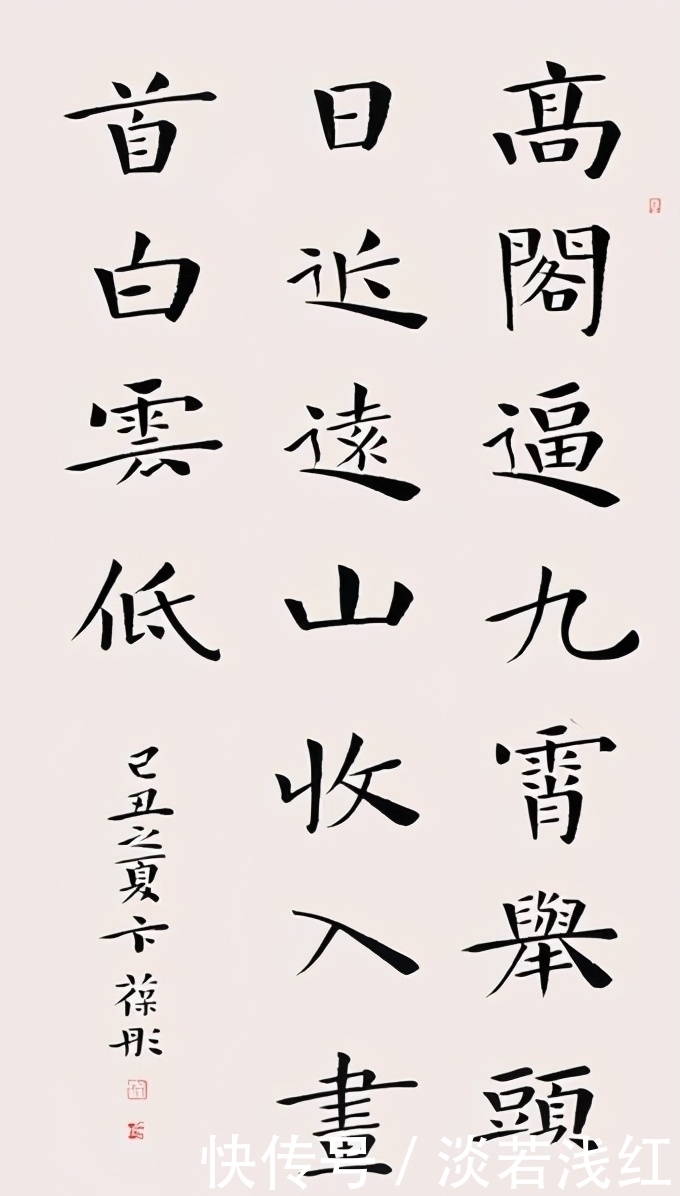 高閣逼九霄舉頭
日近遠山收入畫
首白雲低
己丑之夏卞葆彤
快传号/淡若浅红